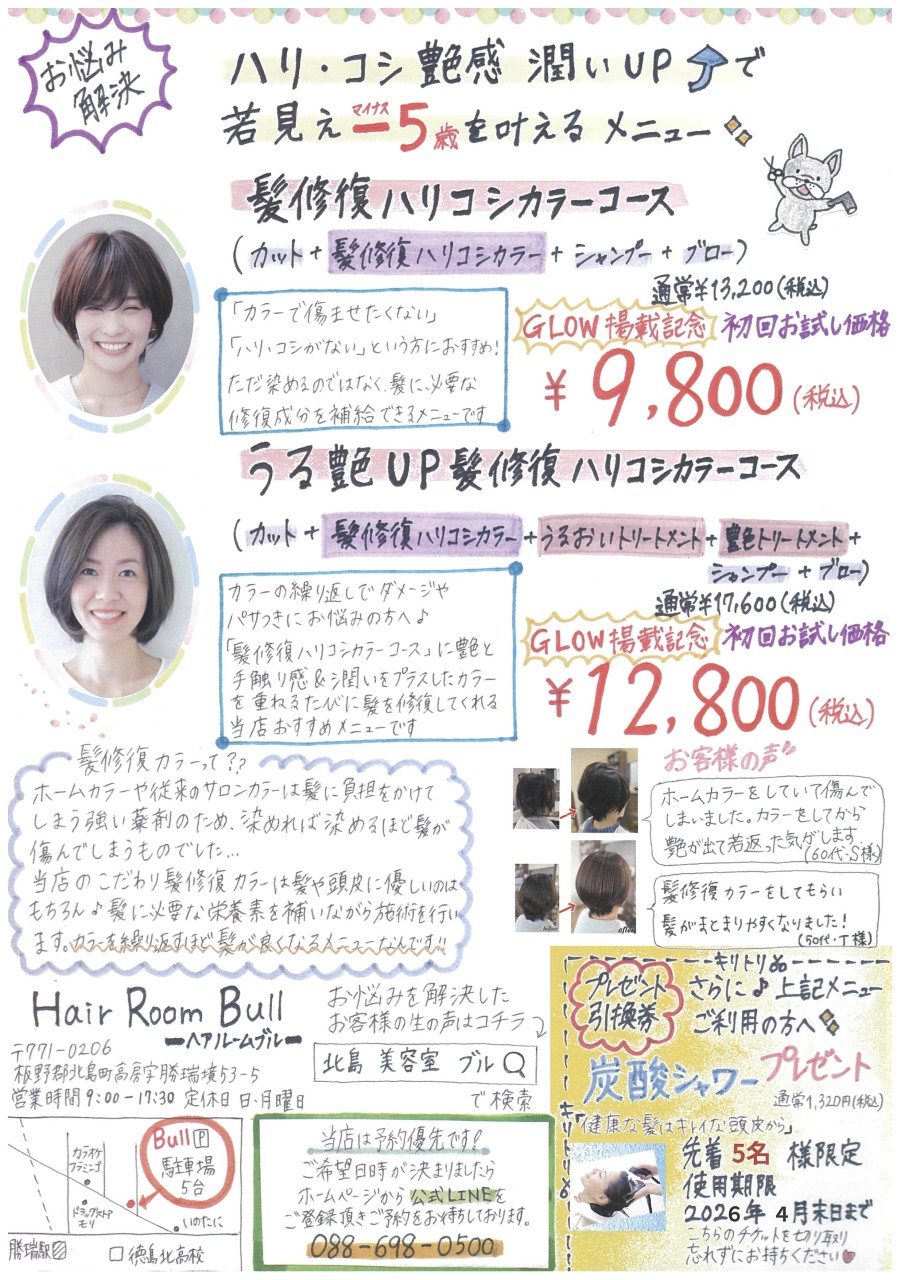 お悩み
解決
ハリ・コシ 艶感 潤いUPで
若見え マイナス ー5歳を叶える メニュー
髪修復ハリコシカラーコース
(カット + 髪修復ハリコシカラー + シャンプー + ブロー)
通常¥13,200(税込)
「カラーで傷ませたくない」
「ハリ、コシがない」という方におすすめ!
ただ染めるのではなく、髪に必要な
修復成分を補給できるメニューです
GLOW掲載記念 初回お試し価格
¥9,800(税込)
うる艶UP髪修復ハリコシカラーコース
(カット + 髪修復ハリコシカラー + うるおいトリートメント + 艶色トリートメント +
シャンプー + ブロー)
通常¥17,600(税込)
カラーの繰り返しでダメージや
パサつきにお悩みの方へ♪
「髪修復ハリコシカラーコース」に艶と
手触り感&潤いをプラスしたカラー
を重ねるたびに髪を修復してくれる
当店おすすめメニューです
GLOW掲載記念 初回お試し価格
¥12,800(税込)
髪修復カラーって??
ホームカラーや従来のサロンカラーは髪に負担をかけて
しまう強い薬剤のため、染めれば染めるほど髪が
傷んでしまうものでした...
当店のこだわり髪修復カラーは髪や頭皮に優しいのは
もちろん♪髪に必要な栄養素を補いながら施術を行い
ます。カラーを繰り返すほど髪が良くなるメニューなんです!!
お客様の声
ホームカラーをしていて傷んで
しまいました。カラーをしてから
艶が出て若返った気がします
(60代・S様)
before
after
髪修復カラーをしてもらい
髪がまとまりやすくなりました!
(50代・T様)
Hair Room Bull
ーヘアルームブルー
〒771-0206
板野郡北島町高房字勝瑞境53-5
営業時間 9:00-17:30 定休日 日・月曜日
お悩みを解決した
お客様の生の声はコチラ
北島 美容室 ブル
で検索
カラオケ
フラミンゴ
ドラッグストア
モリ
Bull P
駐車場
5台
いのたに
勝瑞駅
徳島北高校
当店は予約優先です!
ご希望日時が決まりましたら
ホームページから公式LINEを
ご登録頂きご予約をお待ちしております。
088-698-0500
キリトリ
プレゼント
引換券
さらに♪上記メニュー
ご利用の方へ
炭酸シャワープレゼント
通常1,320円(税込)
「健康な髪はキレイな頭皮から」
キリトリ
先着 5名 様限定
使用期限
2026年 4月末日まで
こちらのチケットを切り取り
忘れずにお持ちください